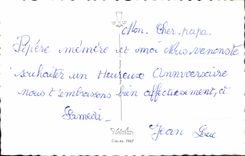 Mon Cher papa
Pépère mémère et moi Nous venons te
souhaiter un Heureux Anniversaire
nous t'embrassons bien affectueusement, à
Samedi -
Jean Luc